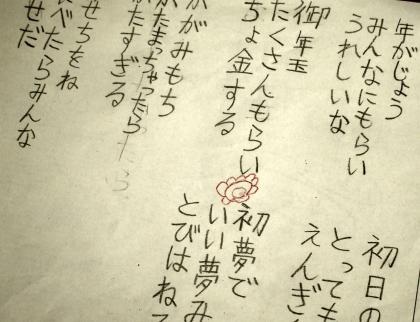 年がじょう
みんなにもらい
うれしいな
御年玉
たくさんもらい
ちょ金する
がみもち
たまっちゃったら
たすぎる
せちをね
べたらみんな
せだ
初日の
とっても
えんぎ
初夢で
いい夢み
とびはね